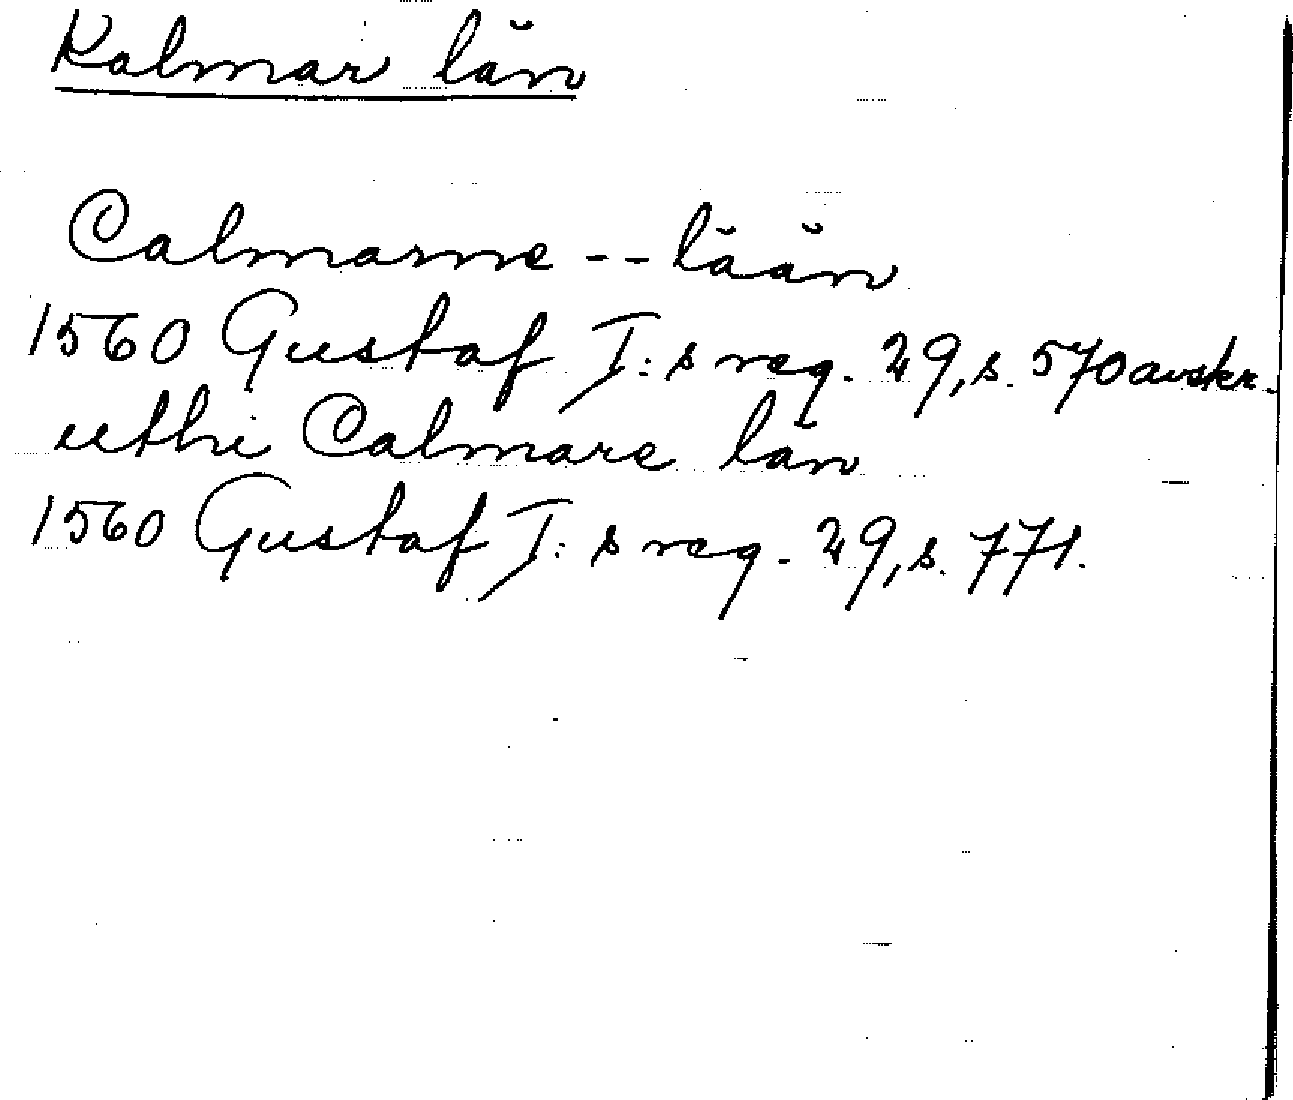 Kalmar län
Calmarne -- lään
1560 Gustaf I:s reg. 29, s. 570 avskr.
uthi Calmare län
1560 Gustaf I:s reg. 29, s. 771.